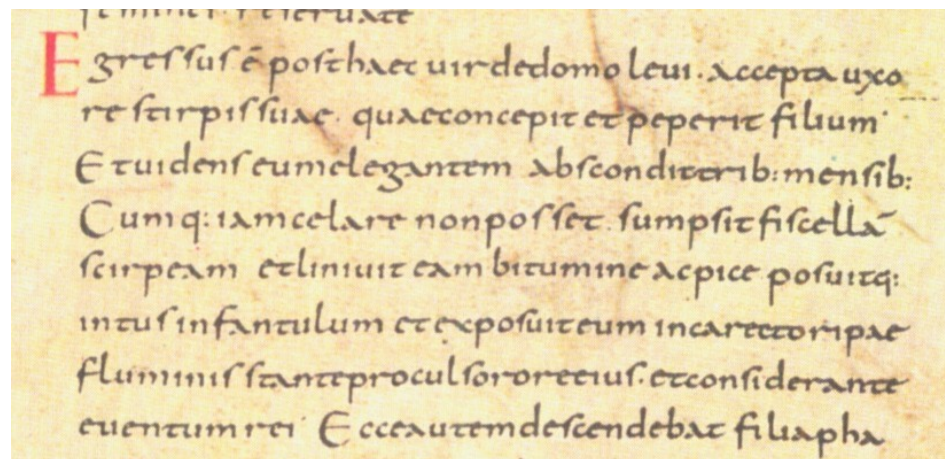 femineum reservate
Egressus ē post haec uir de domo leui. accepta uxo
re stirpis suae. quae concepit et peperit filium
Et uidens eum elegantem abscondit trib: mensib:
Cumq: iam celare non posset. sumpsit fiscellā
scirpeam et liniuit eam bitumine ac pice posuitq:
intus infantulum et exposuit eum in carecto ripae
fluminis stante procul sorore eius. et considerante
euentum rei Ecce autem descendebat filia pha